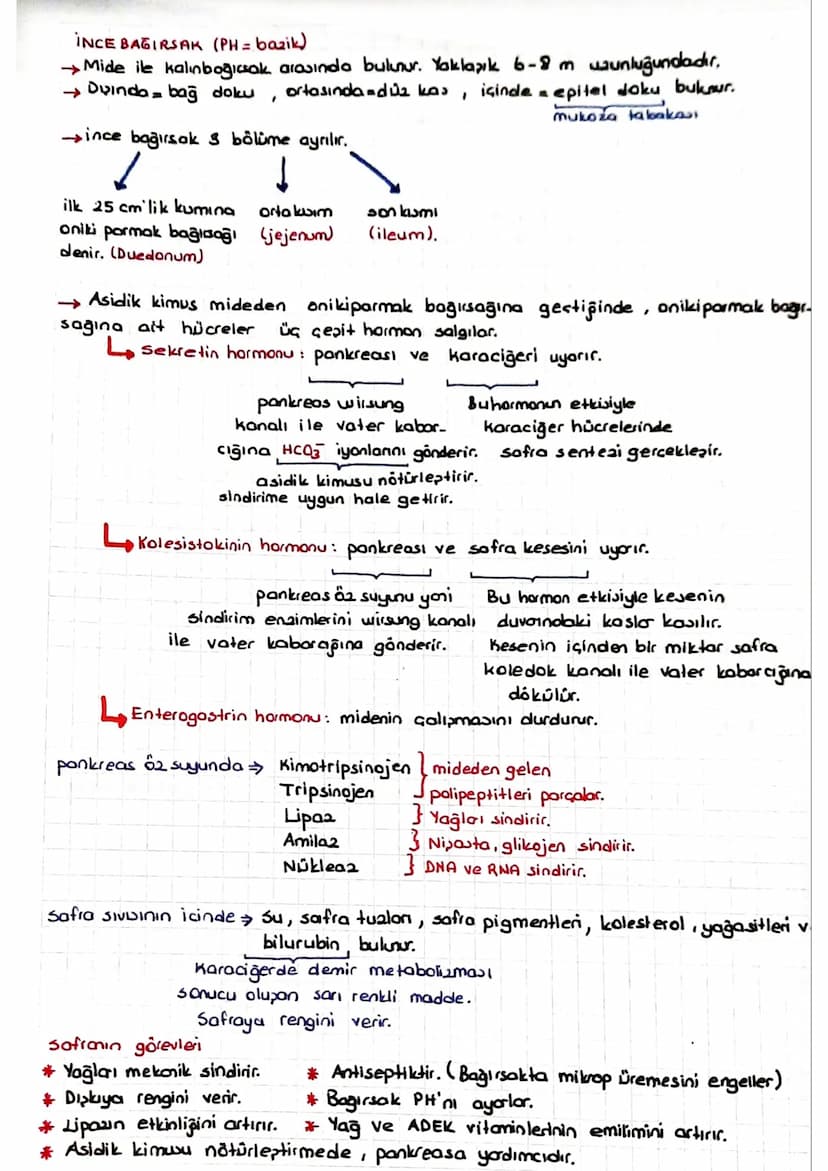 İNCE BAĞIRSAK (PH = bazik)
→ Mide ile kalınbağırsak arasında bulunur. Yaklaşık 6-8 m uzunluğundadır.
→ Dışında = bağ doku , ortasında = düz kas , içinde = epitel doku bulunur.
mukoza tabakası
→ ince bağırsak 3 bölüme ayrılır.
ilk 25 cm'lik kısmına ortakısım sonkısmı
oniki parmak bağırsağı (jejenum) (ileum).
denir. (Duedonum)
→ Asidik kimus mideden onikiparmak bağırsağına geçtiğinde , onikiparmak bağır-
sağına ait hücreler üç çeşit hormon salgılar.
↳ Sekretin hormonu : pankreası ve karaciğeri uyarır.
pankreas wirsung Bu hormonun etkisiyle
kanalı ile vater kabar- karaciğer hücrelerinde
cığına HCO₃⁻ iyonlarını gönderir. safra sentezi gerçekleşir.
asidik kimusu nötürleştirir.
sindirime uygun hale getirir.
↳ Kolesistokinin hormonu : pankreası ve safra kesesini uyarır.
pankreas öz suyunu yani Bu hormon etkisiyle kesenin
sindirim enzimlerini wirsung kanalı duvarındaki kaslar kasılır.
ile vater kabarcığına gönderir. Kesenin içinden bir miktar safra
koledok kanalı ile vater kabarcığına
dökülür.
↳ Enterogastrin hormonu : midenin çalışmasını durdurur.
pankreas öz suyunda ⇒ Kimotripsinojen } mideden gelen
Tripsinojen } polipeptitleri parçalar.
Lipaz } Yağları sindirir.
Amilaz } Nişasta, glikojen sindirir.
Nükleaz } DNA ve RNA sindirir.
Safra sıvısının içinde ⇒ Su, safra tuzları , safra pigmentleri, kolesterol , yağasitleri v
bilurubin bulunur.
Karaciğerde demir metabolizması
sonucu oluşan sarı renkli madde.
Safraya rengini verir.
Safranın görevleri
* Yağları mekanik sindirir. * Antiseptiktir. (Bağırsakta mikrop üremesini engeller)
* Dışkıya rengini verir. * Bağırsak PH'nı ayarlar.
* Lipazın etkinliğini artırır. * Yağ ve ADEK vitaminlerinin emilimini artırır.
* Asidik kimusu nötürleştirmede , pankreasa yardımcıdır.